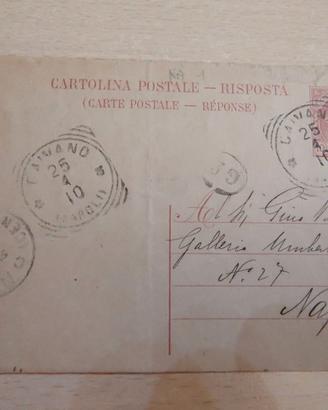 NA 1
CARTOLINA POSTALE — RISPOSTA
(CARTE POSTALE — RÉPONSE)
CAIVANO
25
4
10
(NAPOLI)
CAIVANO
25
A Gino
Galleria Umber
N.o 27
Na